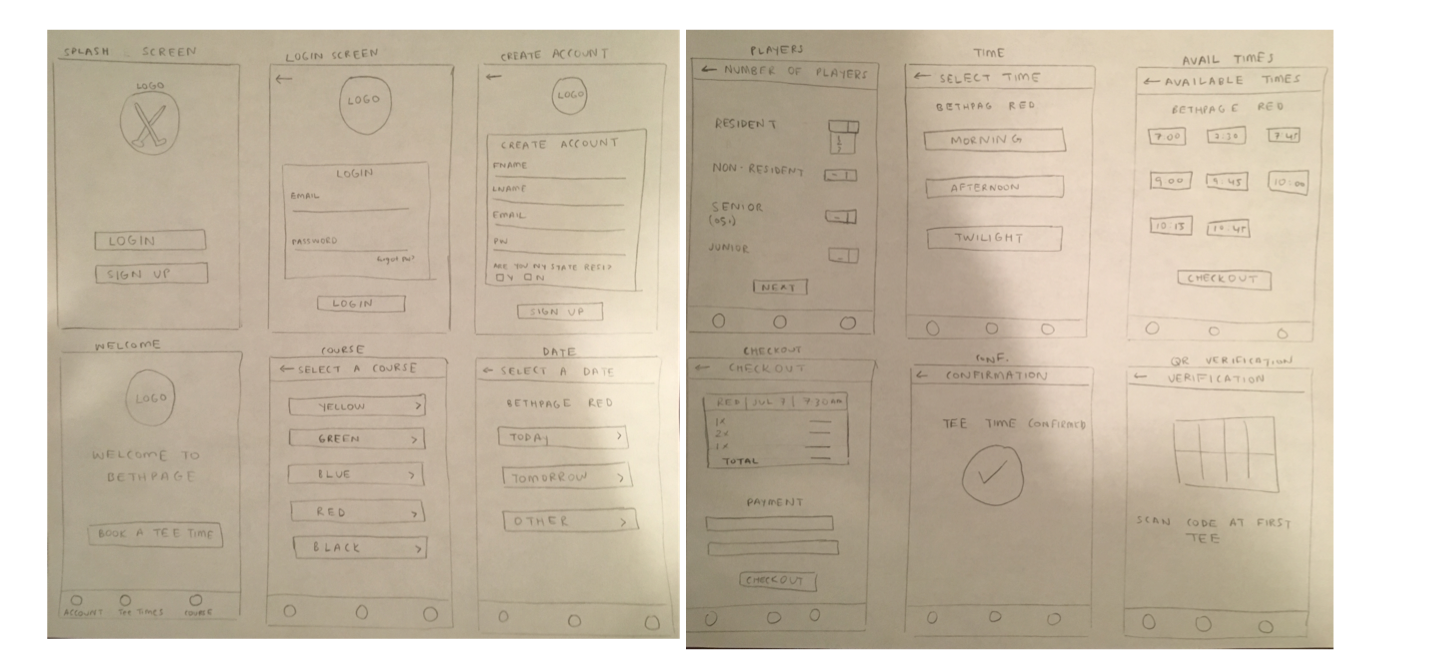 SPLASH SCREEN
LOGO
LOGIN
SIGN UP
LOGIN SCREEN
←
LOGO
LOGIN
EMAIL
PASSWORD
LOGIN
CREATE ACCOUNT
←
LOGO
CREATE ACCOUNT
FNAME
LNAME
EMAIL
PW
ARE YOU NY STATE
Y N
SIGN UP
WELCOME
LOGO
WELCOME TO
BETHPAGE
BOOK A TEE TIME
ACCOUNT TEE TIMES COURSE
COURSE
← SELECT A COURSE
YELLOW >
GREEN >
BLUE >
RED >
BLACK >
DATE
← SELECT A DATE
BETHPAGE RED
TODAY >
TOMORROW >
OTHER >
PLAYERS
← NUMBER OF PLAYERS
RESIDENT
NON-RESIDENT
SENIOR
JUNIOR
TIME
← SELECT TIME
BETHPAG RED
MORNING
AFTERNOON
TWILIGHT
AVAIL TIMES
← AVAILABLE TIMES
BETHPAGE RED
7:00 7:45
9:00 9:45 10:00
10:15 10:45
CHECKOUT
CHECKOUT
← CHECKOUT
RED | JUL 7 | 7:30AM
1x
2x
1x
TOTAL
PAYMENT
CHECKOUT
CONF.
← CONFIRMATION
TEE TIME CONFIRMED
QR VERIFICATION
← VERIFICATION
SCAN CODE AT FIRST
TEE